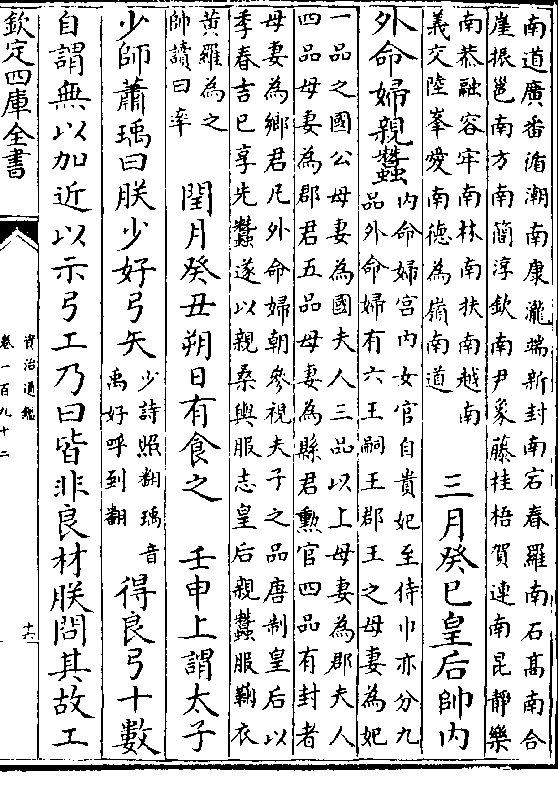 南道廣番循潮南康瀧端新封南宕春羅南石髙南合
崖振邕南方南簡淳欽南尹象藤桂梧賀連南昆靜樂
南恭融容牢南林南扶南越南
義交陸峯愛南德為嶺南道
三月癸巳皇后帥内
外命婦親蠶
内命婦宫内女官自貴妃至侍巾亦分九
品外命婦有六王嗣王郡王之母妻為妃
一品之國公母妻為國夫人三品以上母妻為郡夫人
四品母妻為郡君五品母妻為縣君勲官四品有封者
母妻為鄉君凡外命婦朝參視夫子之品唐制皇后以
季春吉巳享先蠶遂以親桑輿服志皇后親蠶服鞠衣
黄羅為之
帥讀曰率
閏月癸丑朔日有食之　壬申上謂太子
少師蕭瑀曰朕少好弓矢
少詩照翻瑀音
禹好呼到翻
得良弓十數
自謂無以加近以示弓工乃曰皆非良材朕問其故工
欽定四庫全書
資治通鑑
卷一百九十二
十六